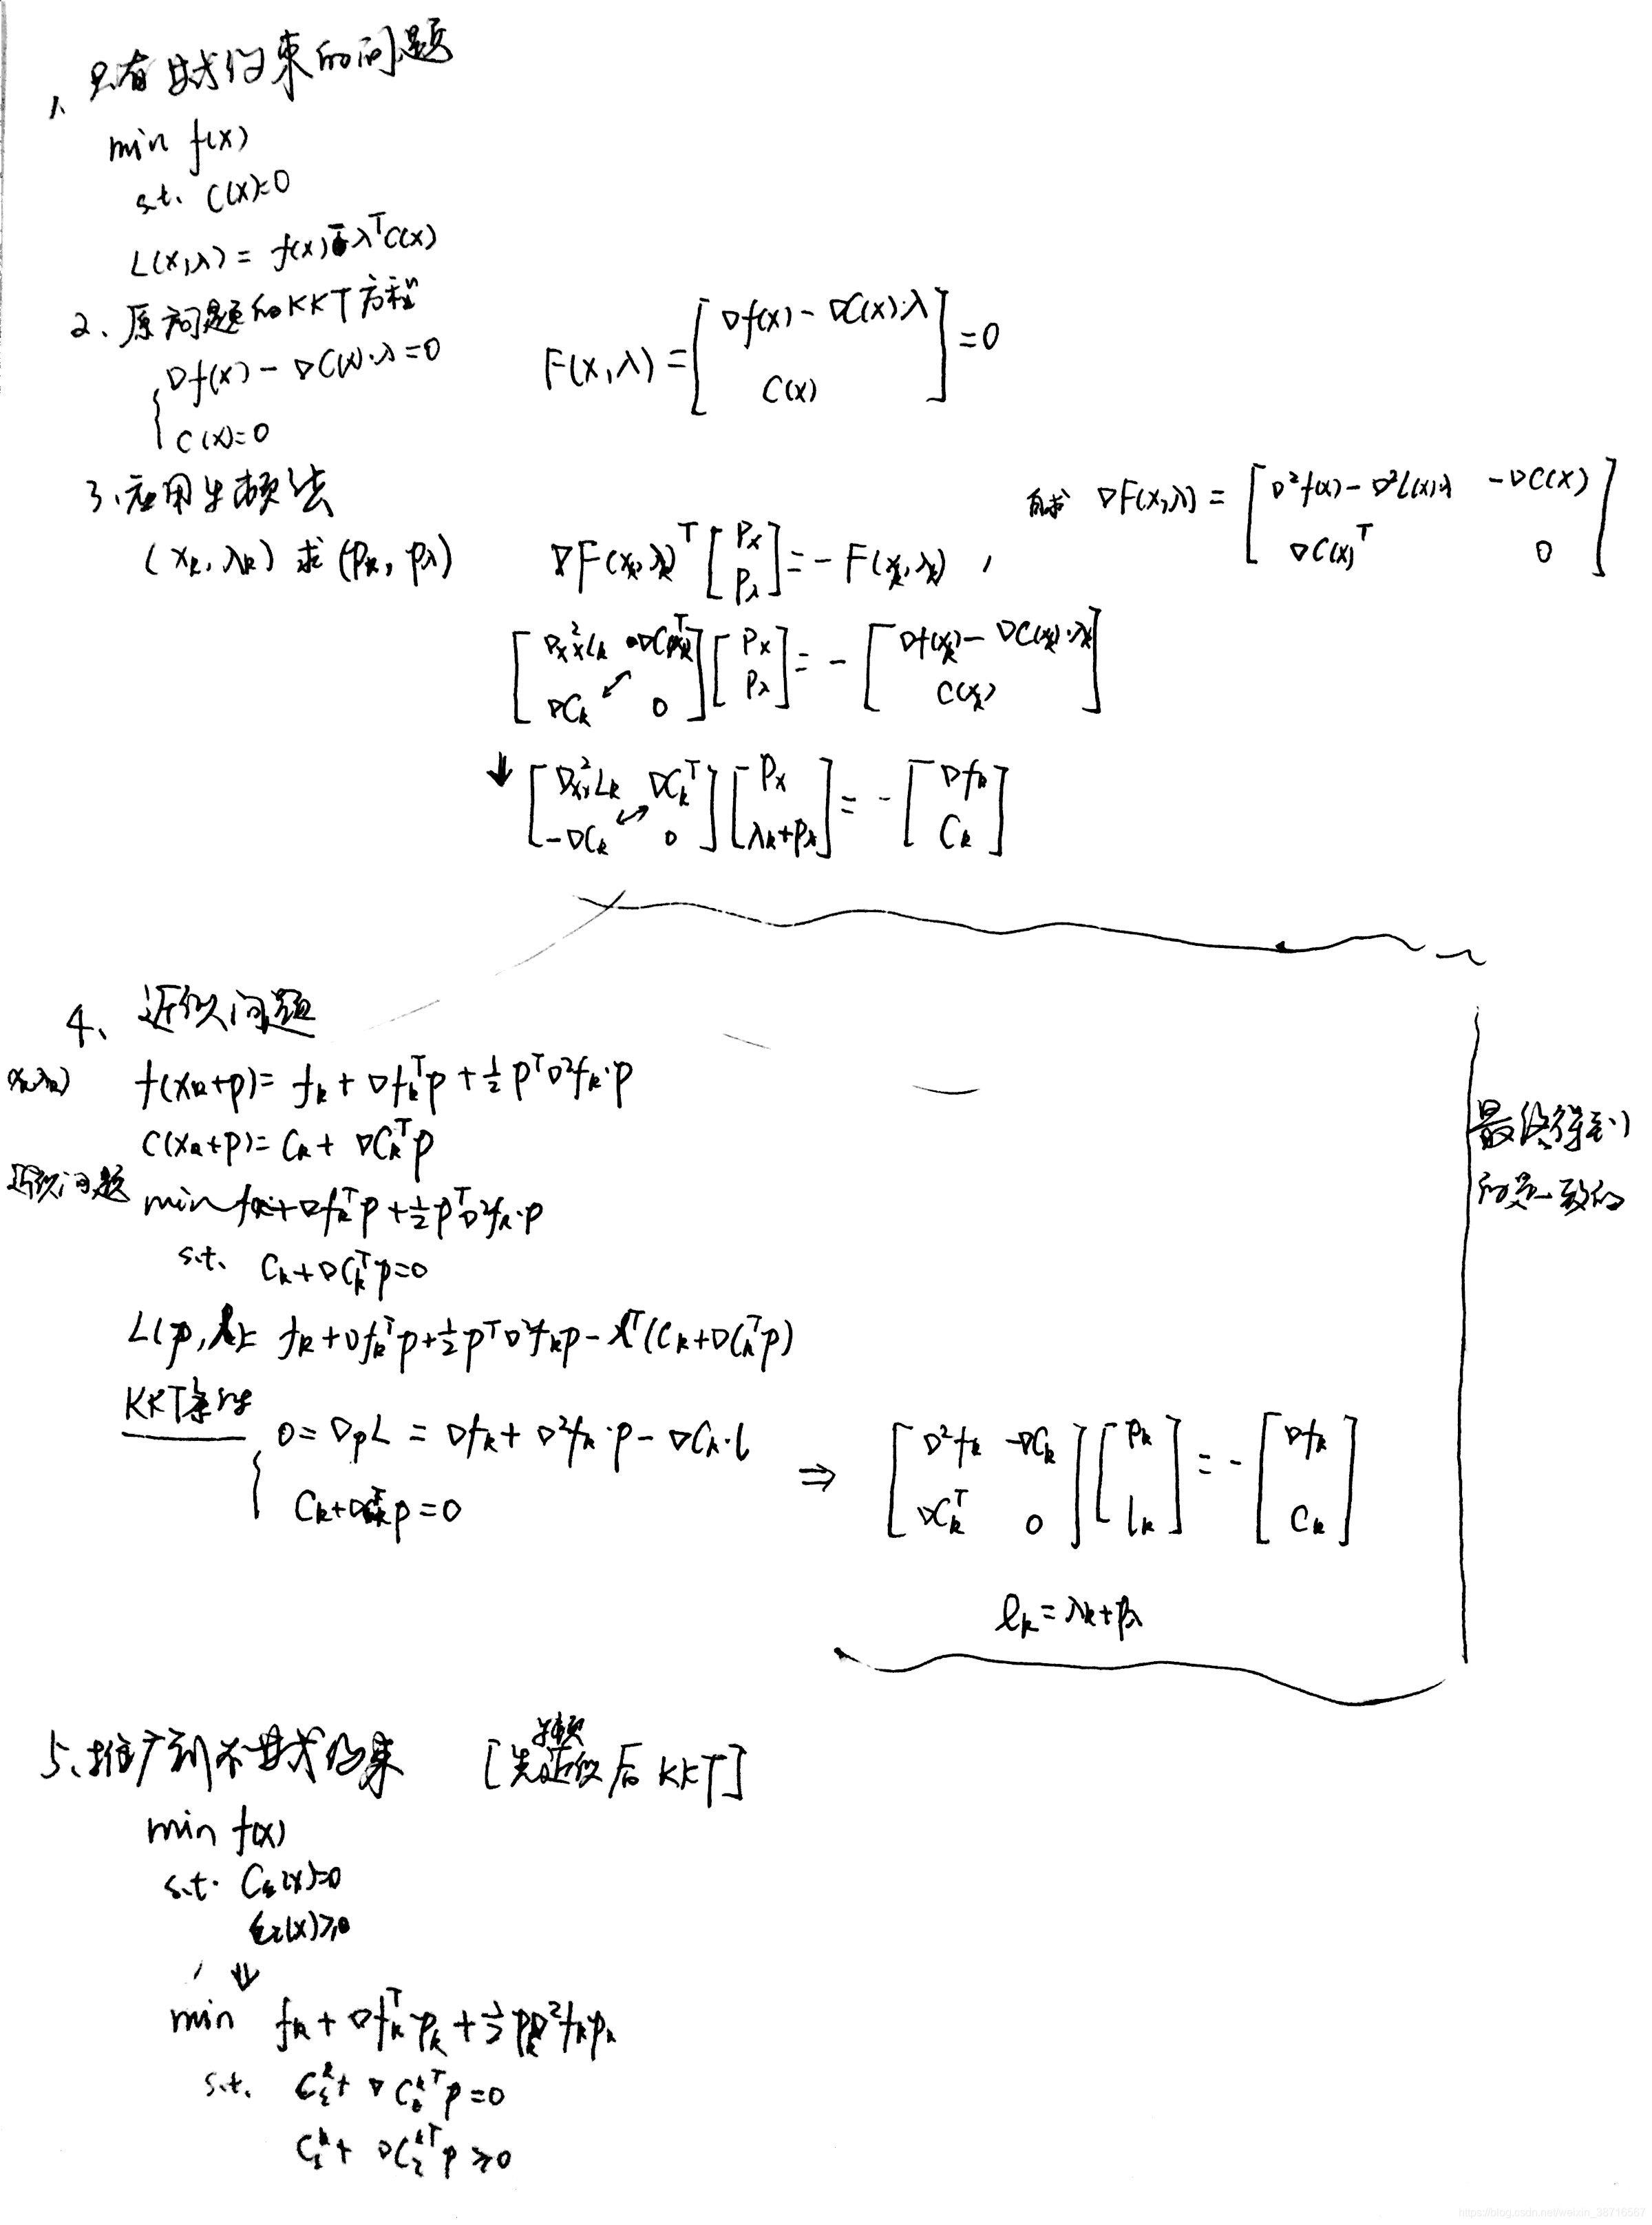 1、只有等式约束的问题
min f(x)
s.t. C(x)=0
L(x,λ) = f(x) - λᵀC(x)
2、原问题的KKT方程
∇f(x) - ∇C(x)·λ = 0
C(x) = 0
F(x,λ) = [ ∇f(x) - ∇C(x)·λ ; C(x) ] = 0
3、应用牛顿法
(xₖ, λₖ) 求 (pₖ, p_λ)
∇F(xₖ,λₖ)ᵀ [ pₓ ; p_λ ] = - F(xₖ,λₖ) ,
∇F(x,λ) = [ ∇²f(x) - ∇²C(x)·λ  -∇C(x) ; ∇C(x)ᵀ  0 ]
[ ∇²ₓₓLₖ  ∇Cₖᵀ ; ∇Cₖ  0 ] [ pₓ ; p_λ ] = - [ ∇f(xₖ) - ∇C(xₖ)·λₖ ; C(xₖ) ]
⇓ [ ∇²ₓₓLₖ  ∇Cₖᵀ ; -∇Cₖ  0 ] [ pₓ ; λₖ+p_λ ] = - [ ∇fₖ ; Cₖ ]
4、近似问题
(xₖ,λₖ)
f(xₖ+p) = fₖ + ∇fₖᵀp + ½ pᵀ∇²fₖ·p
C(xₖ+p) = Cₖ + ∇Cₖᵀp
近似问题
min fₖ + ∇fₖᵀp + ½ pᵀ∇²fₖ·p
s.t. Cₖ + ∇Cₖᵀp = 0
L(p, l) = fₖ + ∇fₖᵀp + ½ pᵀ∇²fₖp - lᵀ(Cₖ + ∇Cₖᵀp)
KKT条件
0 = ∇ₚL = ∇fₖ + ∇²fₖ·p - ∇Cₖ·l
Cₖ + ∇Cₖᵀp = 0
⇒ [ ∇²fₖ  -∇Cₖ ; ∇Cₖᵀ  0 ] [ pₖ ; lₖ ] = - [ ∇fₖ ; Cₖ ]
lₖ = λₖ + p_λ
最终得到
的是一致的
5、推广到不等式约束 [先近似后KKT]
牛顿
min f(x)
s.t. C_ε(x) = 0
C_i(x) ≥ 0
⇓
min fₖ + ∇fₖᵀpₖ + ½ pₖ∇²fₖpₖ
s.t. C_εᵏ + ∇C_εᵏᵀp = 0
C_iᵏ + ∇C_iᵏᵀp ≥ 0